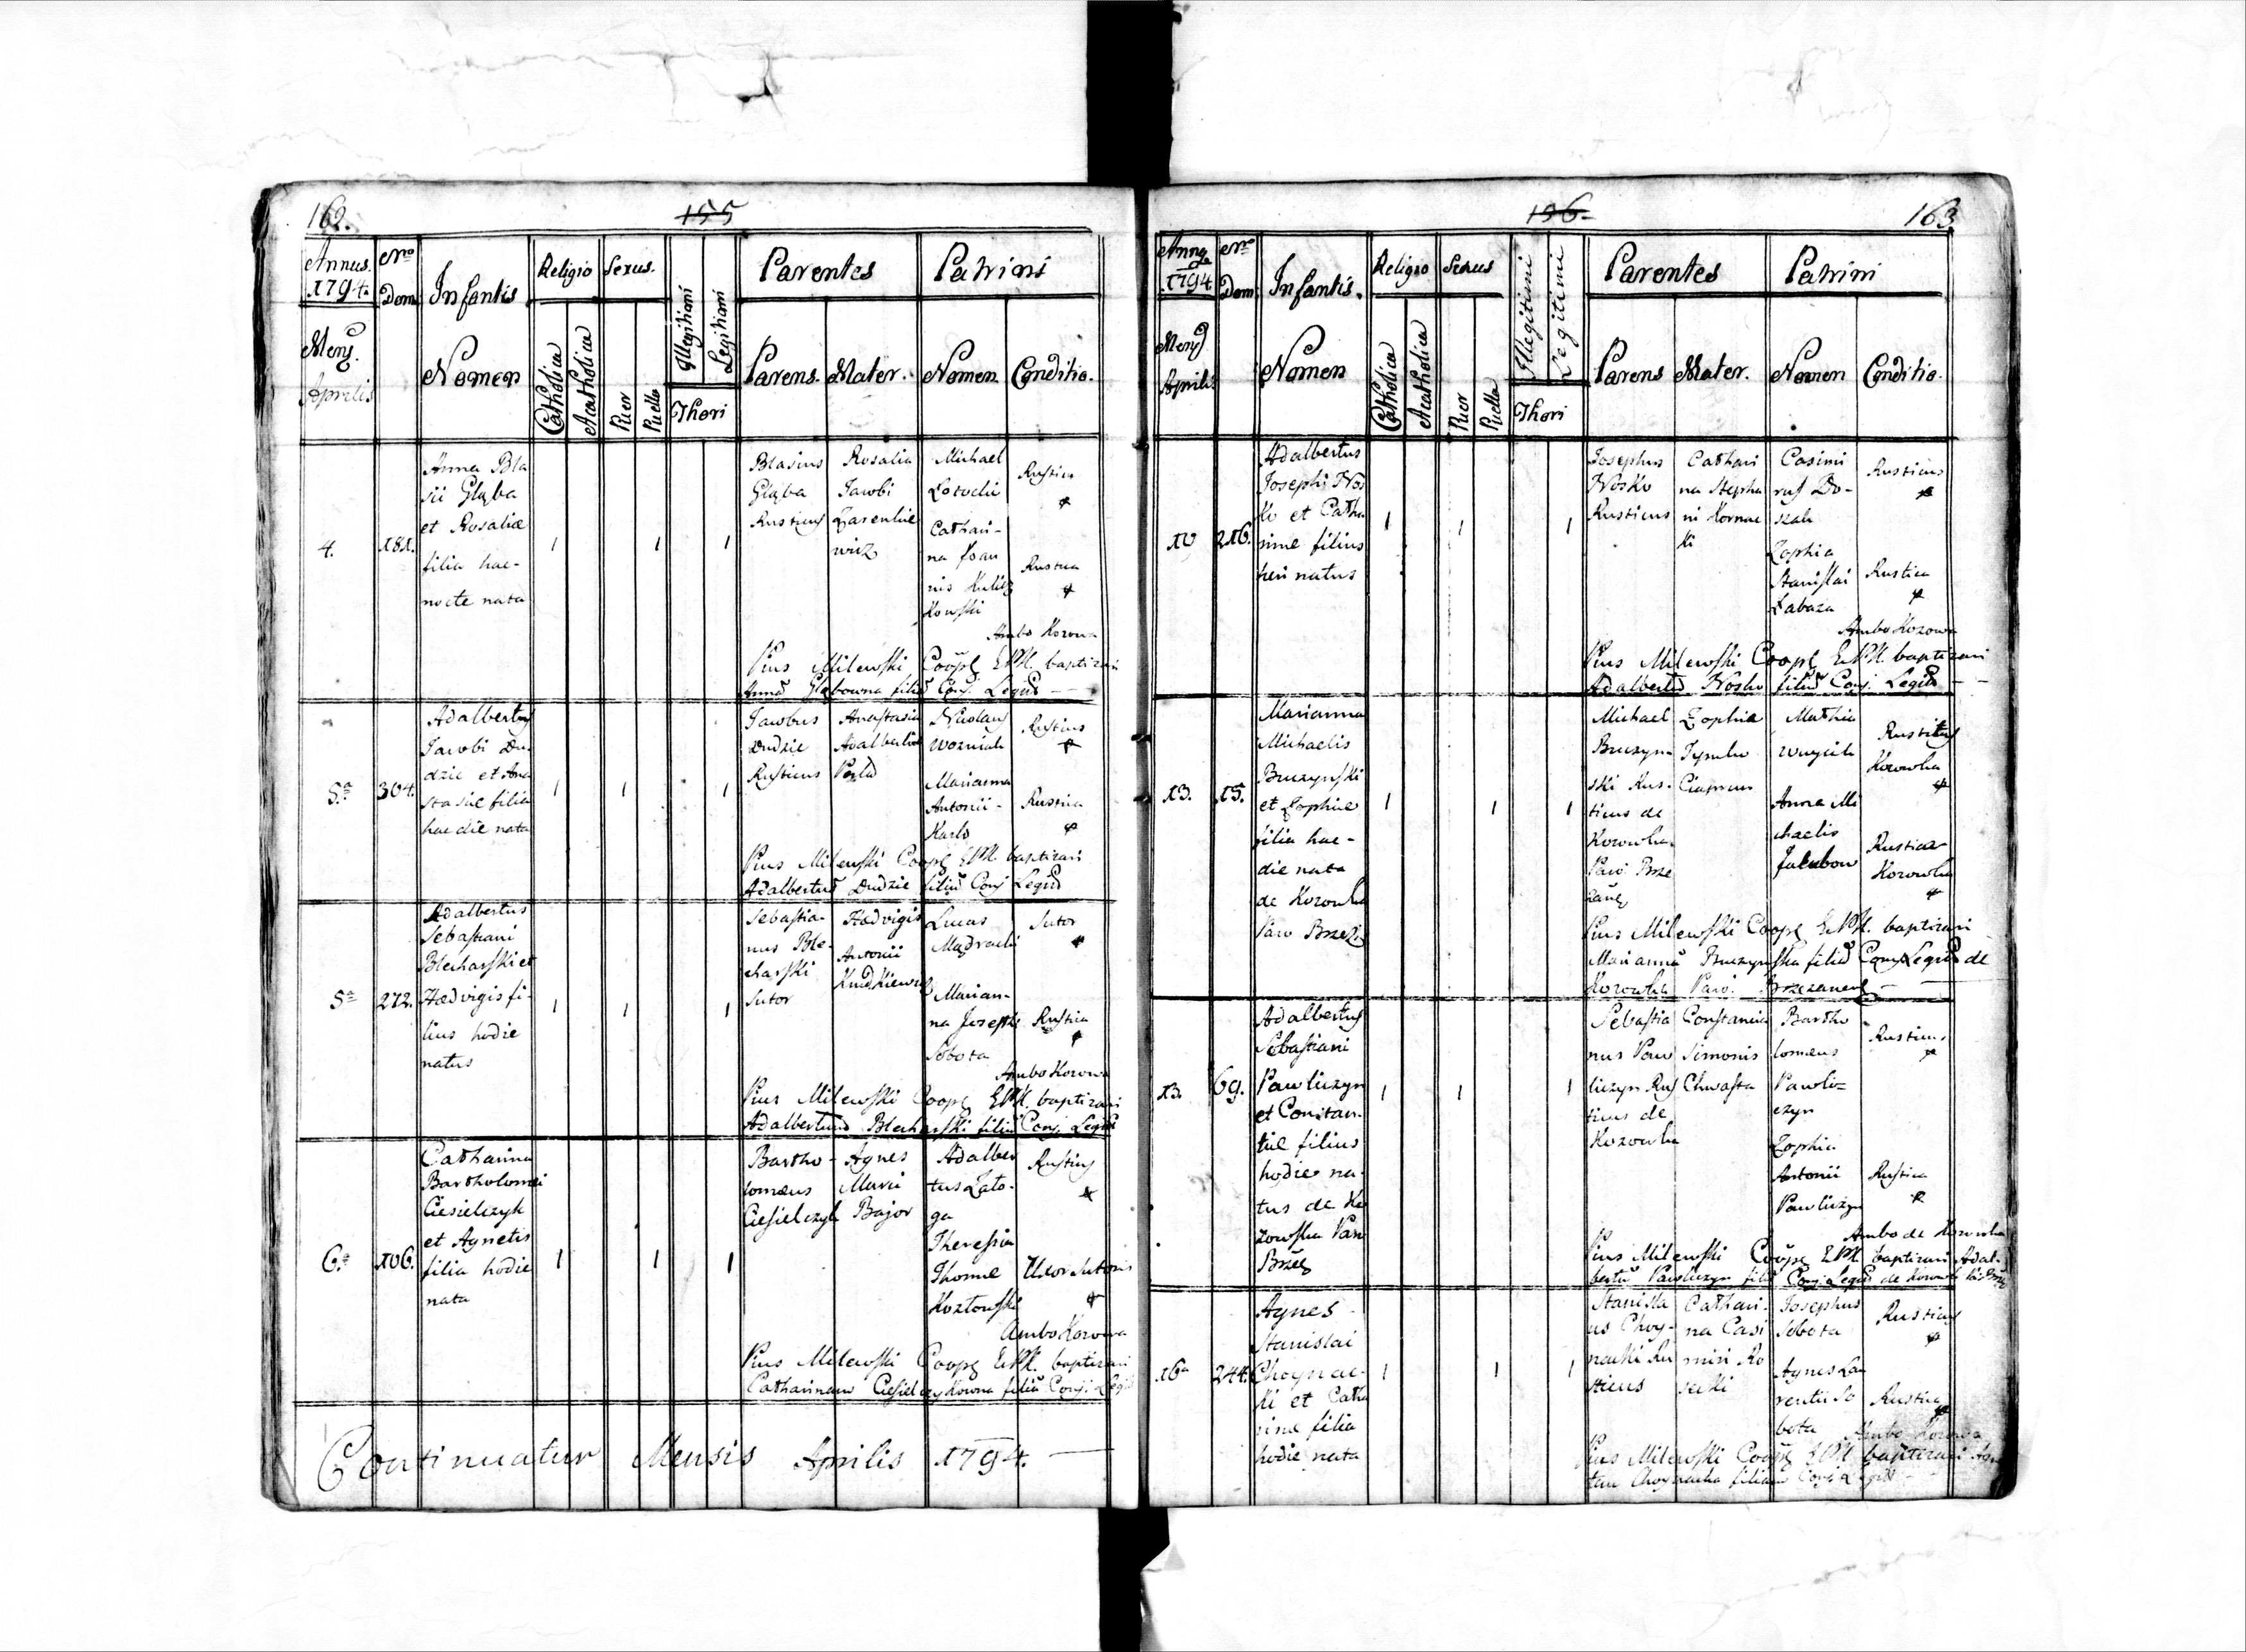 162.
155
Annus. 1794.
Nro Dom
Infantis Nomen
Religio
Sexus.
Illegitimi
Legitimi
Parentes
Patrini
Mens. Aprilis
Catholica
Acatholica
Puer
Puella
Thori
Parens.
Mater.
Nomen
Conditio.
4.
181.
Anna Bla
sii Głąba
et Rosaliæ
filia hac-
nocte nata
1
1
1
Blasius
Głąba
Rusticus
Rosalia
Jacobi
Michael
Cathari-
na Joan
nis
Kowski
Rusticus
Rustica
Ambo Kozowa
Pius Milewski Coop EPK. baptizavi
Annã Głąbowna filiã Conj. Legit
5ta
304.
Adalbertus
Jacobi Du
dzic et Ana
stasiæ filia
hac die nata
1
1
1
Jacobus
Dudzic
Rusticus
Anastasia
Adalberti
Nicolaus
Wozniak
Marianna
Antonii-
Karlo
Rusticus
Rustica
Pius Milewski Coop EPK. baptizavi
Adalbertũ Dudzic filiũ Conj Legit
5ta
272.
Adalbertus
Sebastiani
Blecharski et
Hædvigis fi-
lius hodie
natus
1
1
1
Sebastia-
nus Ble-
charski
Sutor
Hædvigis
Antonii
Lucas
Marian-
na Josephi
Sobota
Sutor
Rustica
Ambo Kozowa
Pius Milewski Coop EPK. baptizavi
Adalbertum Blecharski filiũ Conj. Legit
6ta
106.
Catharina
Bartholomæi
Ciesielczyk
et Agnetis
filia hodie
nata
1
1
1
Bartho-
lomæus
Ciesielczyk
Agnes
Bajor
Adalber
tus Zało-
ga
Theresia
Thomæ
Kozłowski
Rusticus
Uxor Sutoris
Ambo Kozowa
Pius Milewski Coop EPK. baptizavi
Catharinam Ciesielczykowna filiã Conj. Legit
Continuatur Mensis Aprilis 1794.
156.
163
1794
Nro Dom
Infantis. Nomen
Religio
Sexus
Illegitimi
Legitimi
Parentes
Patrini
Mens Aprilis
Catholica
Acatholica
Puer
Puella
Thori
Parens
Mater.
Nomen
Conditio.
10
216.
Adalbertus
Josephi Nos
ko et Catha
rinæ filius
heri natus
1
1
1
Josephus
Nosko
Rusticus
Cathari
na Stepha
ni Kornac
ki
Casimi
rus Do-
Zophia
Stanislai
Łabaza
Rusticus
Rustica
Ambo Kozowa
Pius Milewski Coop EPK. baptizavi
Adalbertũ Nosko filiũ Conj. Legit
13.
15.
Marianna
Michaelis
Buczynski
et Zophiæ
filia hac-
die nata
de Kozowka
Paro Brzez
1
1
1
Michael
Buczyn-
ski Rus-
ticus de
Kozowka
Paro. Brze
Zophia
Mathia
Woycik
Anna Mi
chaelis
Jakubow
Rusticus
Kozowka
Rustica
Kozowka
Pius Milewski Coop EPK. baptizavi
Mariannã Buczynska filiã Conj Legit de
Kozowka Paro. Brzezanen
13.
69.
Adalbertus
Sebastiani
Pawliczyn
et Constan-
tiæ filius
hodie na-
tus de Ko
zowka Paro
Brzez
1
1
1
Sebastia
nus Paw
liczyn Rus
ticus de
Kozowka
Constancia
Simonis
Chwasta
Bartho
lomæus
Pawli-
czyn
Zophia
Antonii
Pawliczyn
Rusticus
Rustica
Ambo de Kozowka
Pius Milewski Coop EPK baptizavi Adal-
bertũ Pawliczyn filiũ Conj. Legit de Kozowka
16ta
244.
Agnes
Stanislai
Choynac-
ki et Catha
rinæ filia
hodie nata
1
1
1
Stanisla
us Choy-
nacki Ru
sticus
Cathari-
na Casi
miri Ko
Josephus
Sobota
Agnes Lau
rentii So
bota
Rusticus
Rustica
Ambo Kozowa
Pius Milewski Coop EPK baptizavi Agne
tem Choynacka filiam Conj Legit